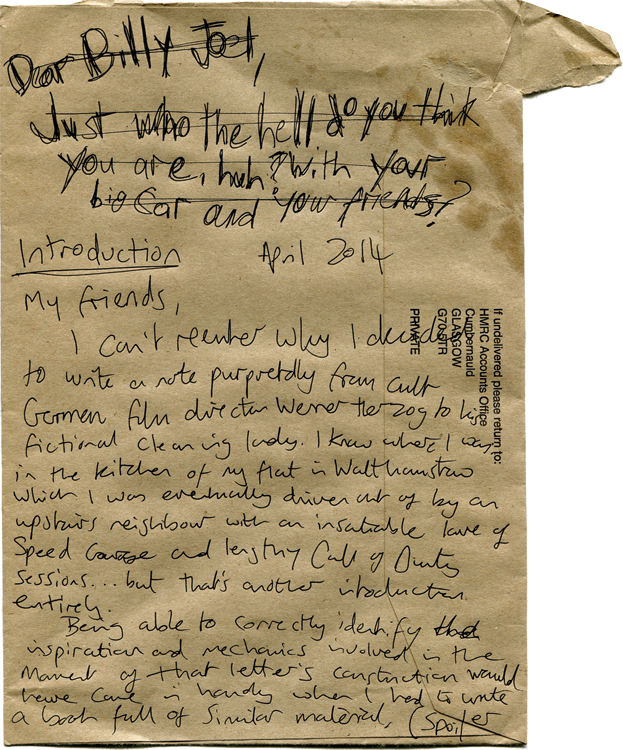 Dear Billy Joel,
Just who the hell do you think
you are, huh? With your
big car and your friends?
Introduction April 2014
My friends,
I can't remember why I decided
to write a note purportedly from cult
German film director Werner Herzog to his
fictional cleaning lady. I know where I was,
in the kitchen of my flat in Walthamstow
which I was eventually driven out of by an
upstairs neighbour with an insatiable love of
Speed Garage and lengthy Call of Duty
sessions... but that's another introduction
entirely.
Being able to correctly identify the
inspiration and mechanics involved in the
moment of that letter's construction would
have come in handy when I had to write
a book full of similar material, (Spoiler
If undelivered please return to:
HMRC Accounts Office
Cumbernauld
GLASGOW
G70 5TR
PRIVATE